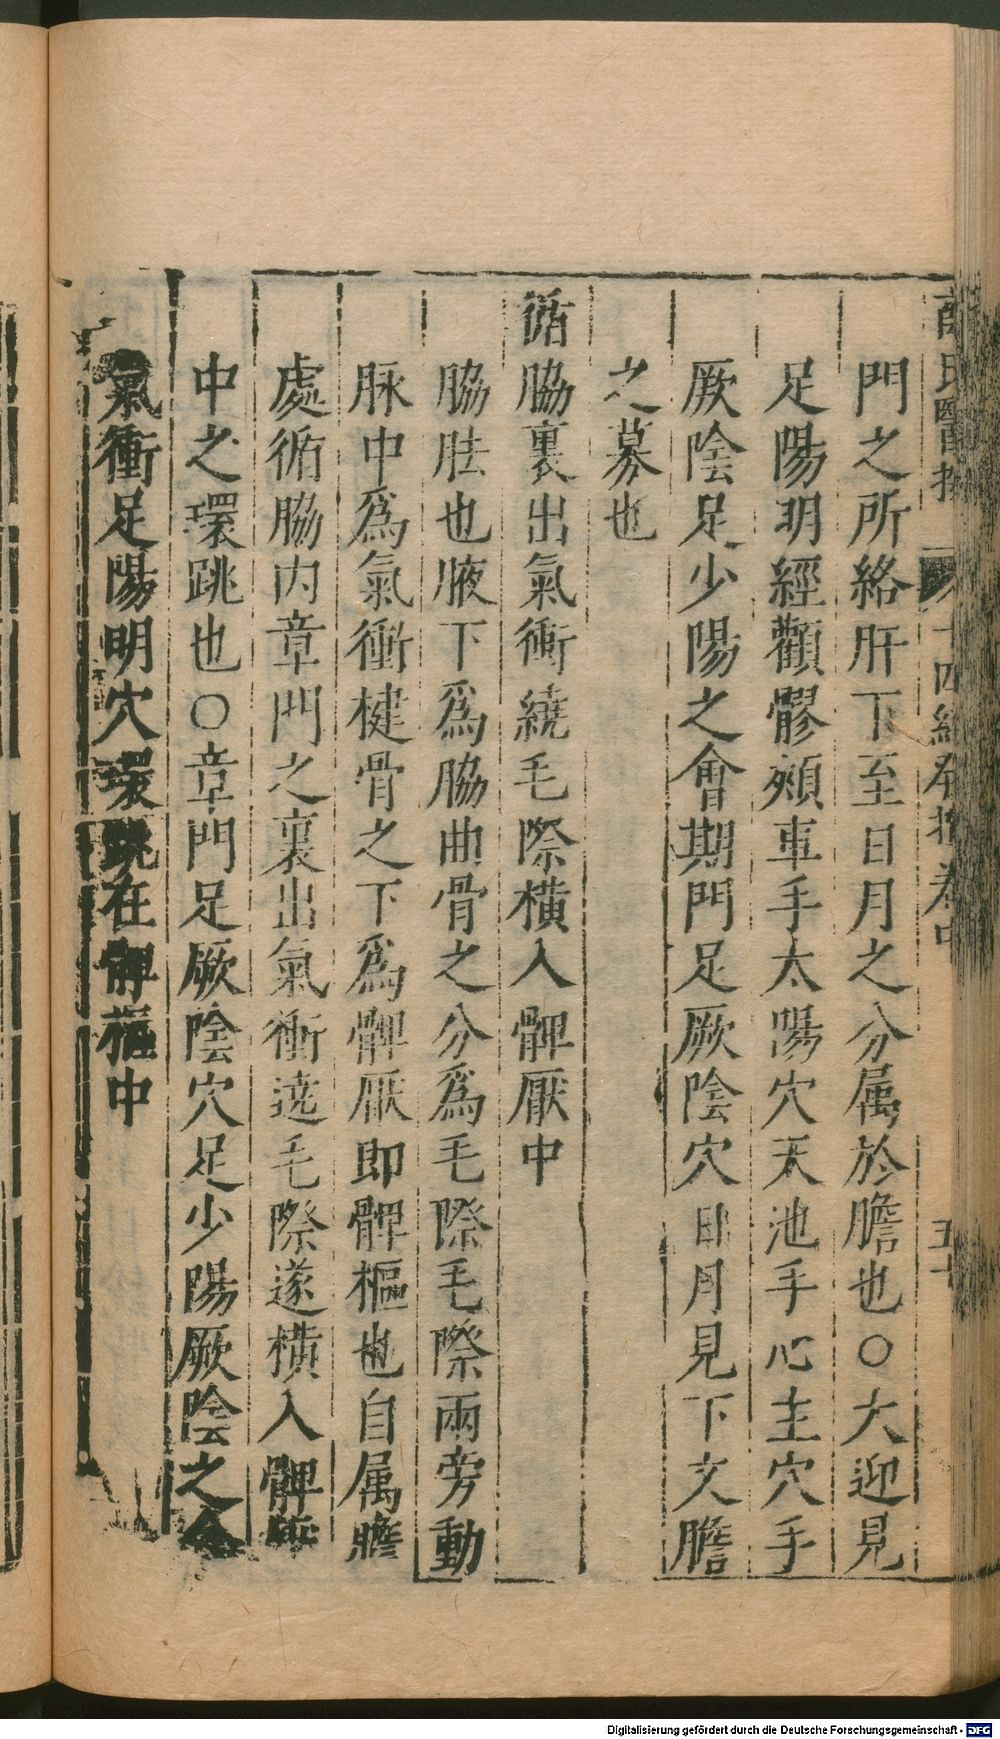 薛氏醫按 十四經發揮卷中 五十
門之所絡肝下至日月之分属於膽也○大迎見
足陽明經顴髎頰車手太陽穴天池手心主穴手
厥陰足少陽之會期門足厥陰穴日月見下文膽
之募也
循脇裏出氣衝繞毛際橫入髀厭中
脇胠也腋下為脇曲骨之分為毛際毛際兩旁動
脉中為氣衝楗骨之下為髀厭即髀樞也自属膽
處循脇内章門之裏出氣衝遶毛際遂横入髀厭
中之環跳也○章門足厥陰穴足少陽厥陰之會
氣衝足陽明穴環跳在髀樞中
Digitalisierung gefördert durch die Deutsche Forschungsgemeinschaft - DFG